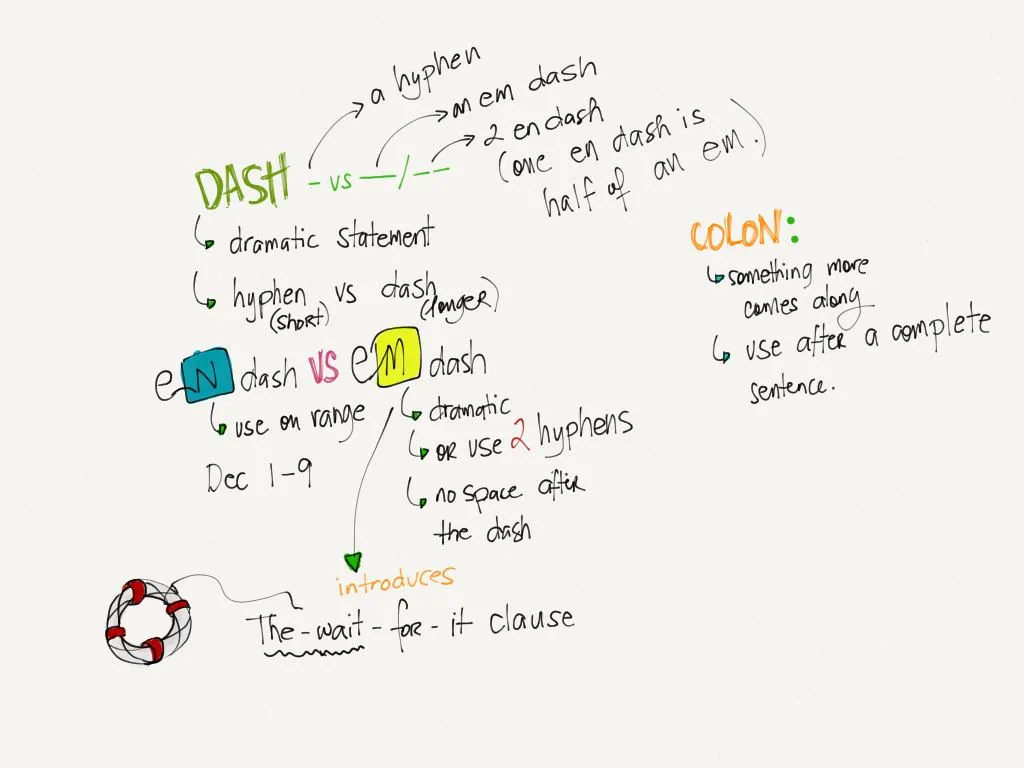 a hyphen
an em dash
2 en dash
(one en dash is
half of an em.)
DASH - vs —/--
dramatic statement
hyphen vs dash
(short) (longer)
eN dash VS eM dash
use on range
Dec 1-9
dramatic
or use 2 hyphens
no space after
the dash
introduces
The-wait-for-it clause
COLON:
something more
comes along
use after a complete
sentence.